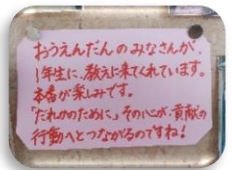 おうえんだんのみなさんが、
1年生に、教えに来てくれています。
本番が楽しみです。
「だれかのために」その心が、貢献の
行動へとつながるのですね！